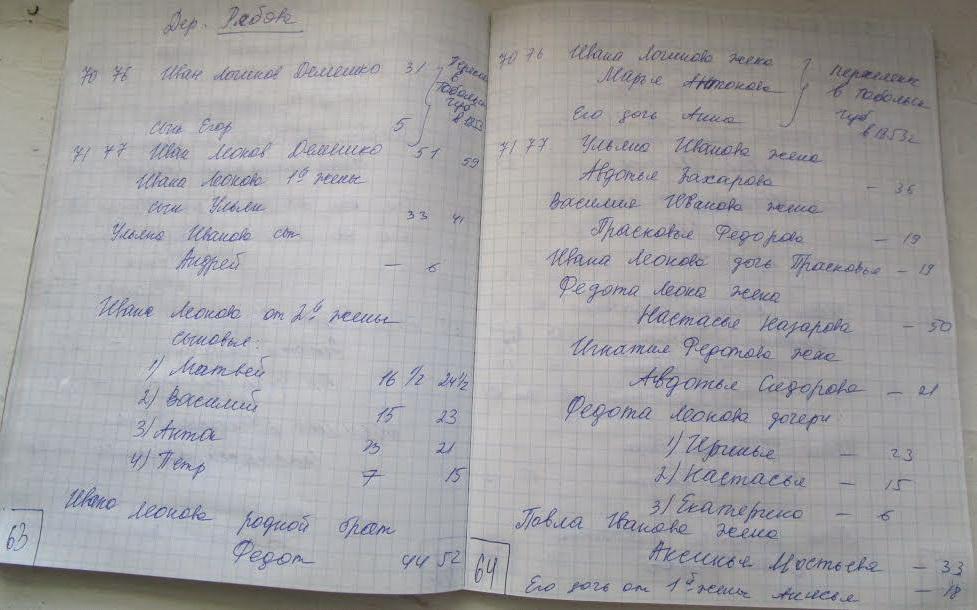 Дер. Рябова
70 76 Иван Логинов Демешко 31
в Тобольск губ в 1853
сын Егор 5
71 77 Иван Леонов Демешко 51 59
Ивана Леонова 1й жены
сын Ульян 33 41
Ульяна Иванова сын
Андрей — 6
Ивана Леонова от 2й жены
сыновья:
1) Матвей 16 1/2 24 1/2
2) Василий 15 23
3) Антон 13 21
4) Петр 7 15
Ивана Леонова родной брат
Федот 44 52
63
70 76 Ивана Логинова жена
Марья Антонова
Его дочь Анна
в Тобольск
губ
в 1853г
71 77 Ульяна Иванова жена
Авдотья Захарова — 36
Василия Иванова жена
Прасковья Федорова — 19
Ивана Леонова дочь Прасковья — 19
Федота Леона жена
Настасья Назарова — 50
Игнатия Федотова жена
Авдотья Сидорова — 21
Федота Леонова дочери:
1) Иринья — 23
2) Настасья — 15
3) Екатерина — 6
Павла Иванова жена
Аксинья — 33
Его дочь от 1й жены — 18
64